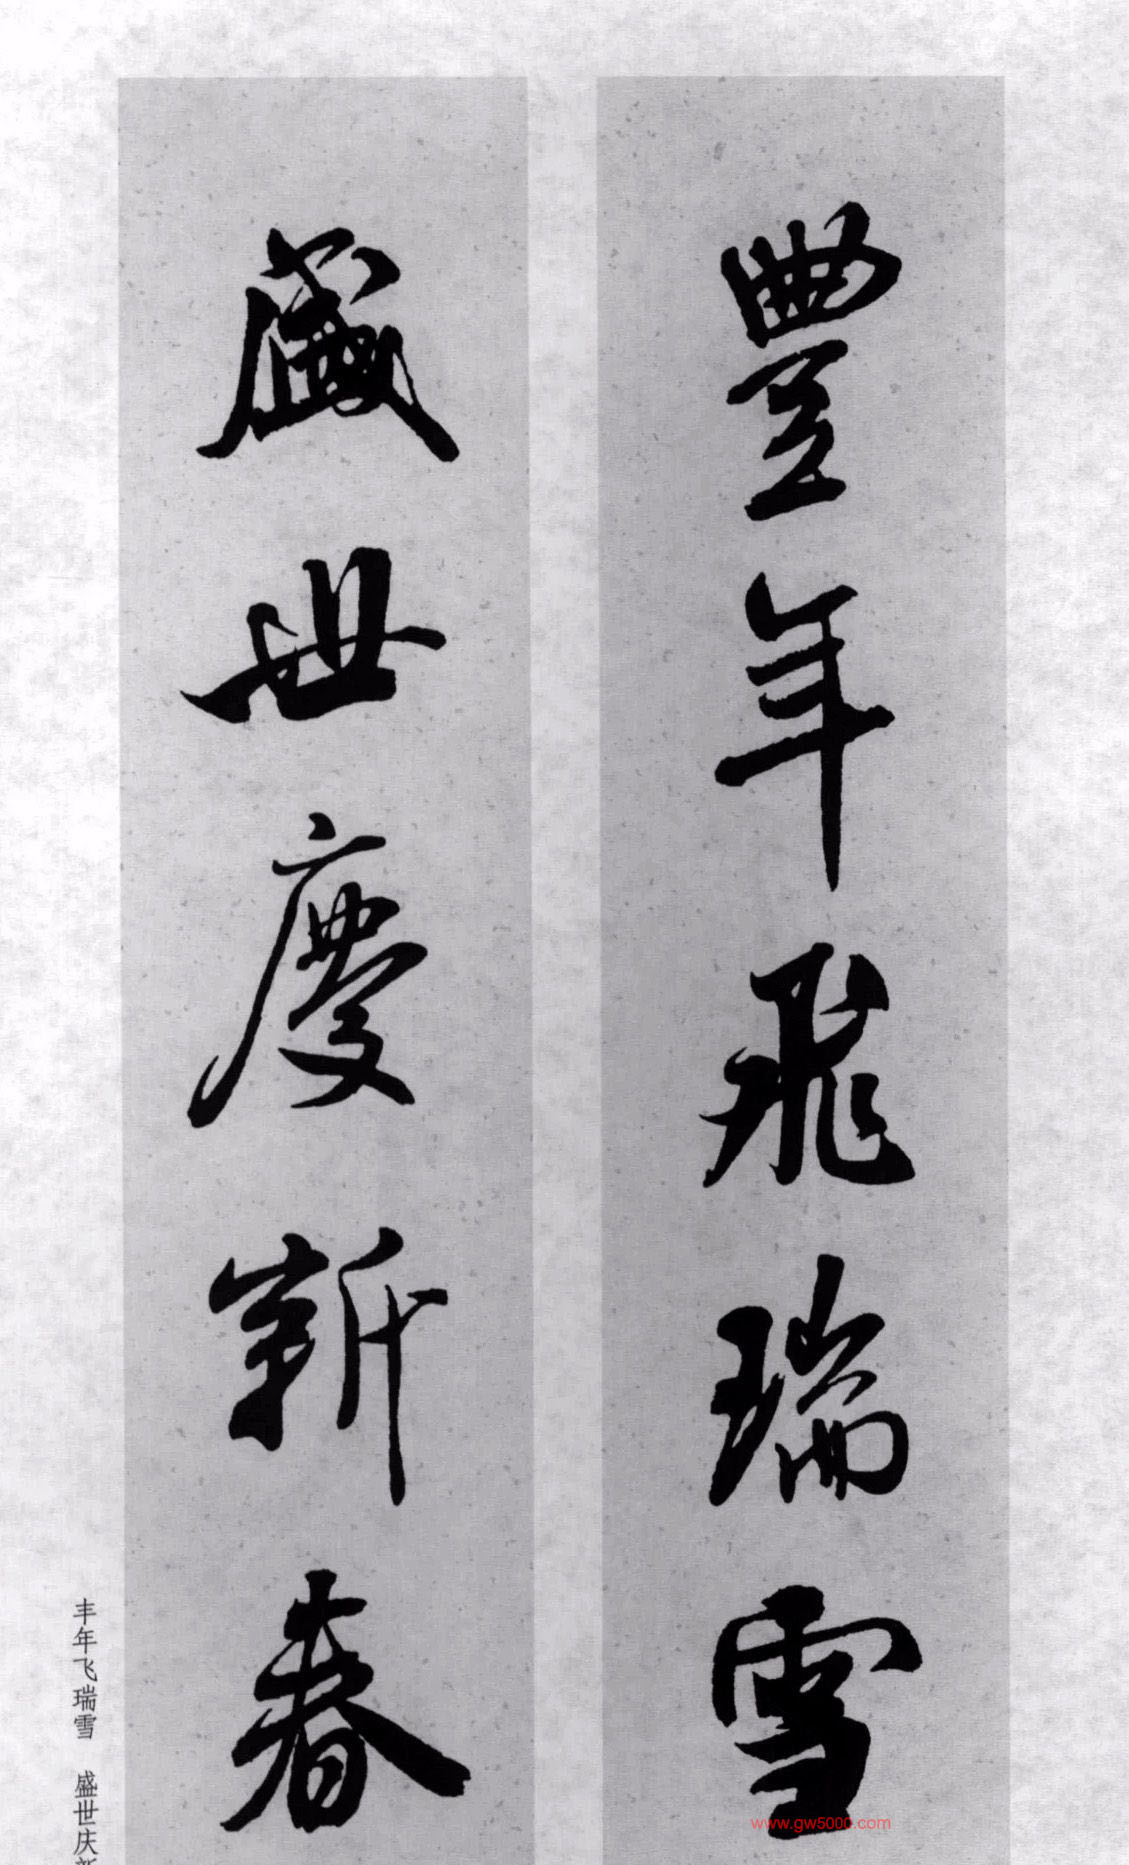 豐年飛瑞雪
盛世慶新春
丰年飞瑞雪 盛世庆新
www.gw5000.com